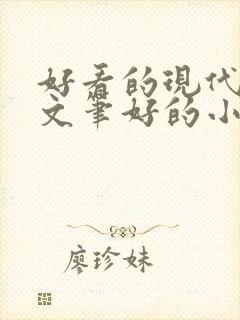 好看的现代
文笔好的小
廖珍妹